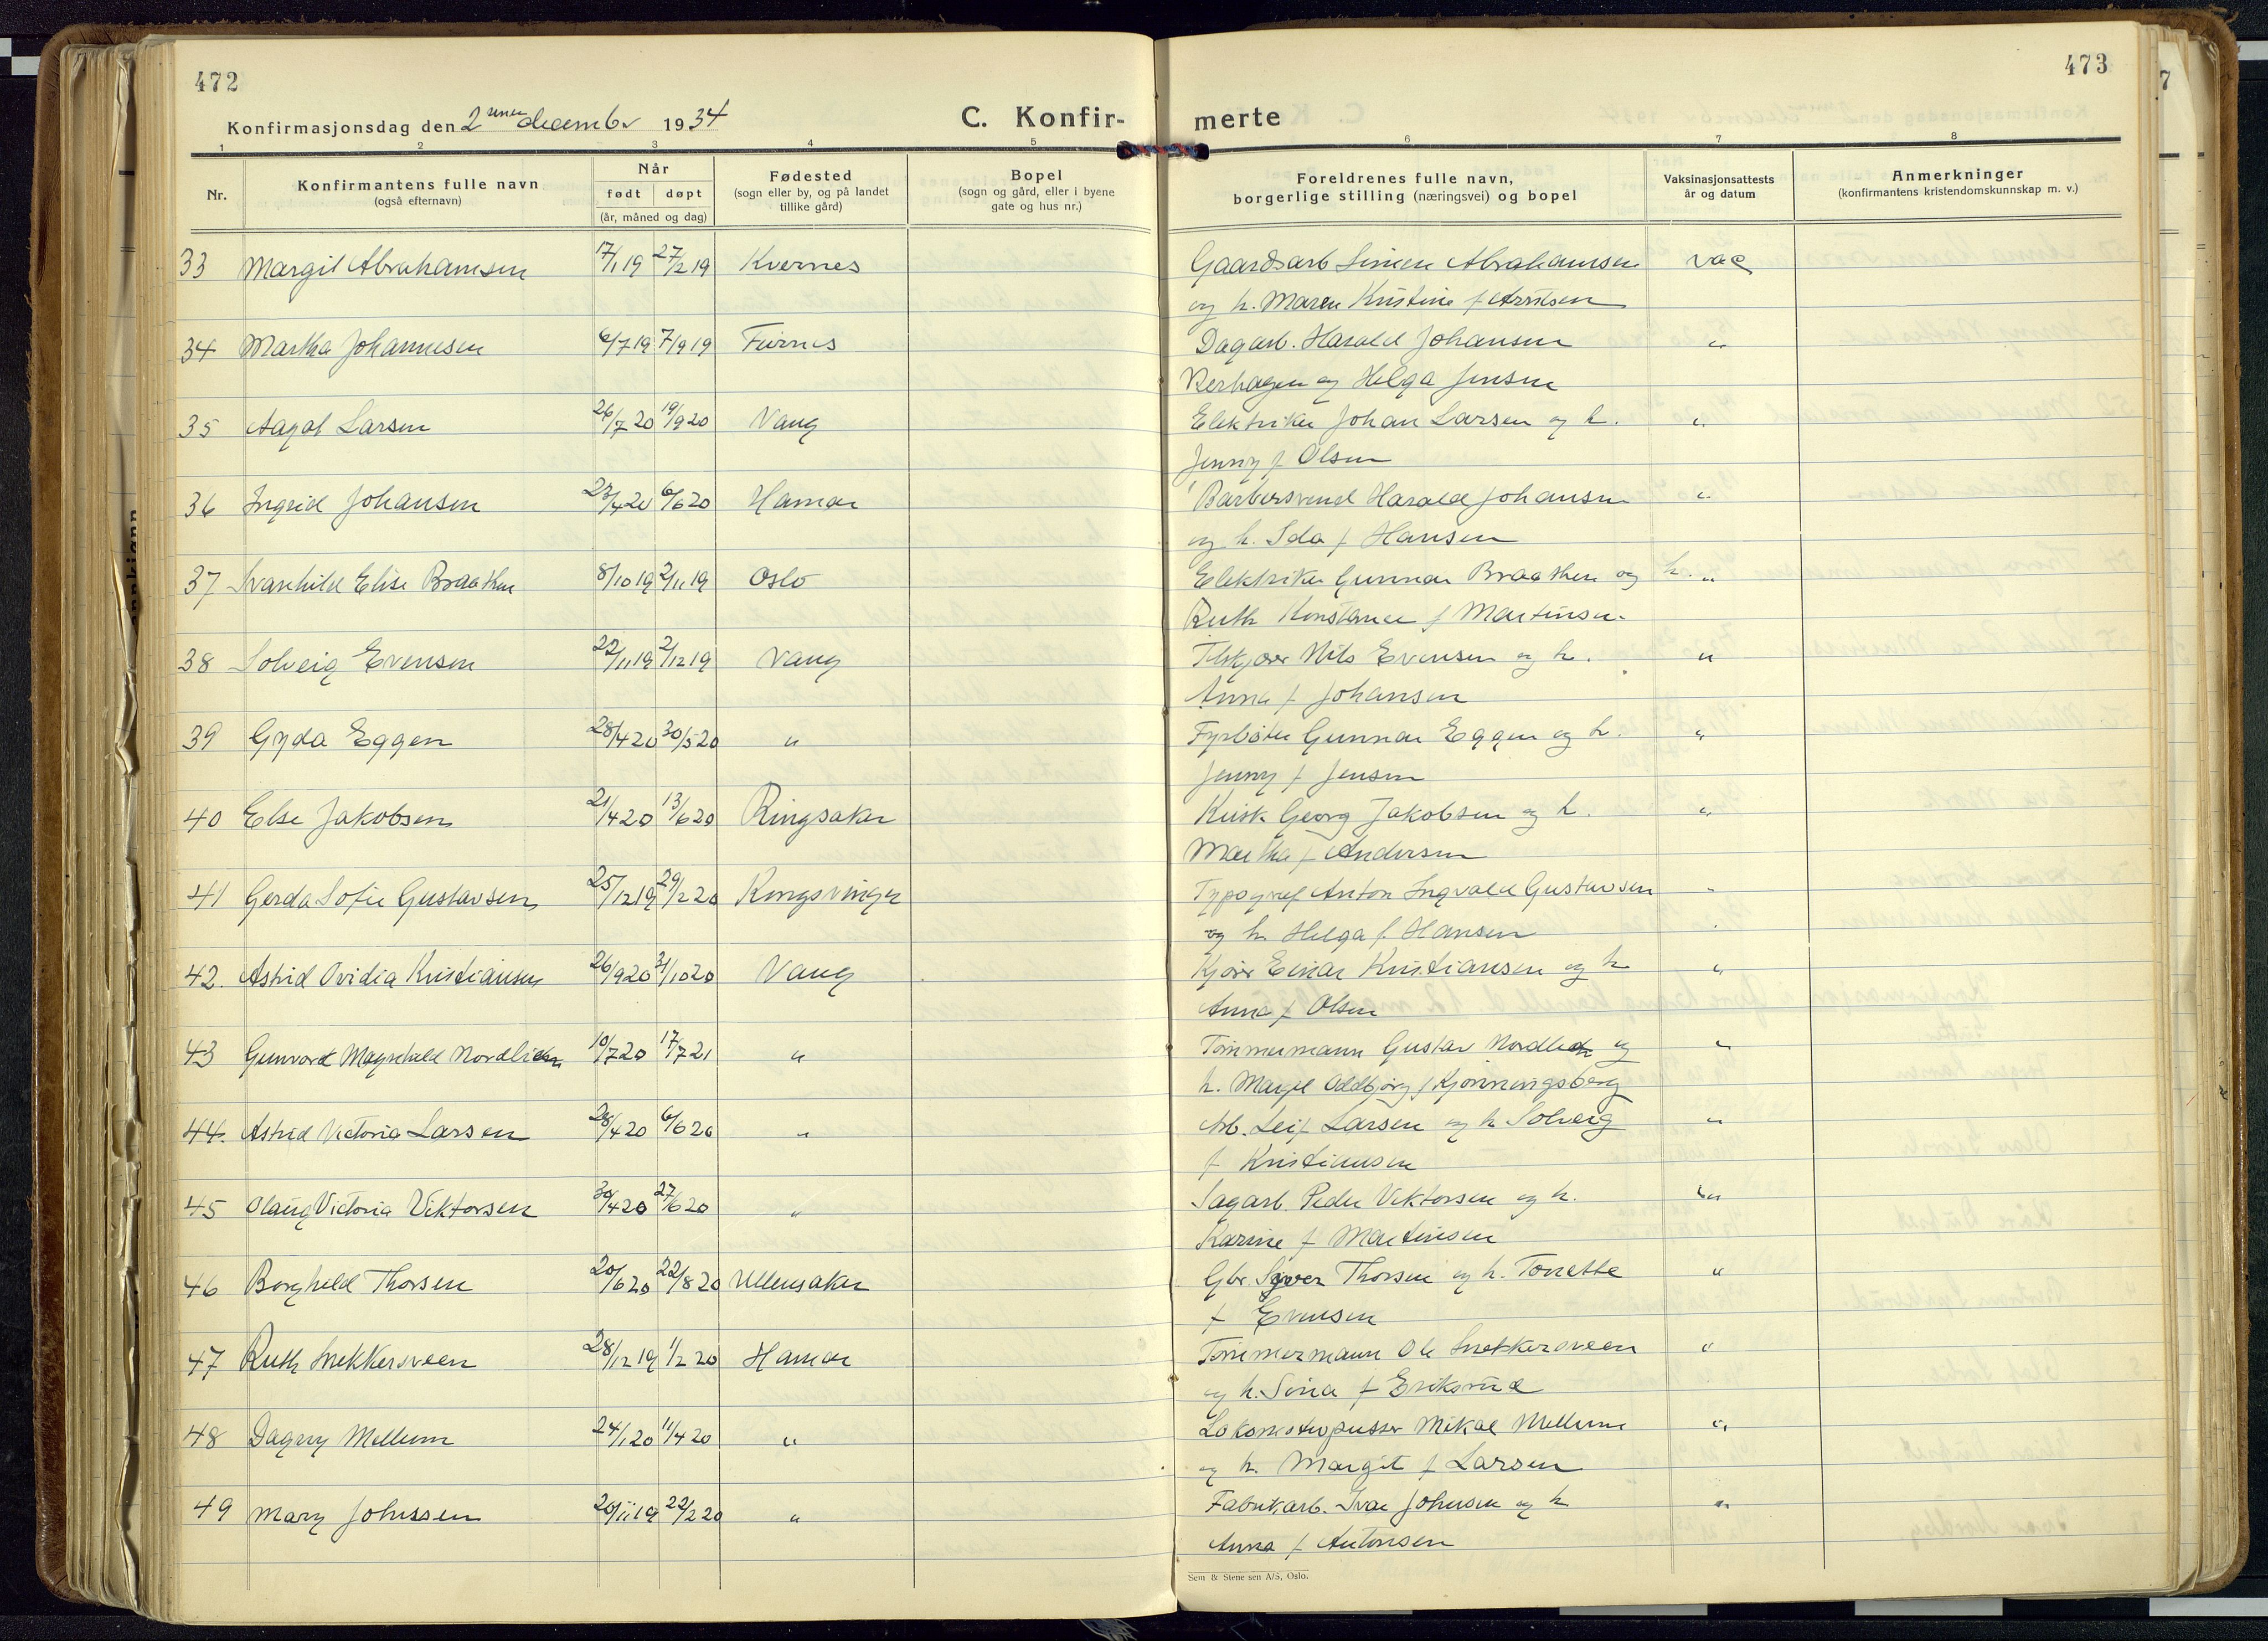 472
Konfirmasjonsdag den 2 december 1934
C. Konfir-
1 2 3 4 5
Nr.
Konfirmantens fulle navn
(også efternavn)
Når
født døpt
(år, måned og dag)
Fødested
(sogn eller by, og på landet
tillike gård)
Bopel
(sogn og gård, eller i byene
gate og hus nr.)
33 Margit Abrahamsen 17/1 19 27/2 19 Kvernes
34 Martha Johannesen 6/7 19 7/9 19 Furnes
35 Aagot Larsen 26/7 20 19/9 20 Vang
36 Ingrid Johansen 23/4 20 6/6 20 Hamar
37 Svanhild Elise Braathen 8/10 19 2/11 19 Oslo
38 Solveig Evensen 22/11 19 2/12 19 Vang
39 Gyda Eggen 28/4 20 30/5 20 "
40 Else Jakobsen 21/4 20 13/6 20 Ringsaker
41 Gerda Sofie Gustavsen 25/12 19 29/2 20 Kongsvinger
42. Astrid Ovidia Kristiansen 26/9 20 31/10 20 Vang
43 Gunvord Magnhild Nordlien 10/7 20 17/7 21 "
44. Astrid Victoria Larsen 28/4 20 6/6 20 "
45 Olaug Victoria Viktorsen 30/4 20 27/6 20 "
46 Borghild Thorsen 20/6 20 22/8 20 Ullensaker
47 Ruth Snekkersveen 28/12 19 1/2 20 Hamar
48 Dagny Mellum 24/1 20 11/4 20 "
49 Mary Johnssen 20/11 19 22/2 20 "
473
merte
6 7 8
Foreldrenes fulle navn,
borgerlige stilling (næringsvei) og bopel
Vaksinasjonsattests
år og datum
Anmerkninger
(konfirmantens kristendomskunnskap m. v.)
Gaardsarb Simen Abrahamsen vac
og h. Maren Kristine f
Dagarb. Harald Johansen "
og Helga Jensen
Elektriker Johan Larsen og h. "
Jenny f Olsen
Barbersvend Harald Johansen "
og h. Ida f Hansen
Elektriker Gunnar Braathen og h. "
Ruth Konstance f Martinsen
Nils Evensen og h. "
Anna f Johansen
Fyrbøter Gunnar Eggen og h. "
Jenny f Jensen
Kusk Georg Jakobsen og h. "
Martha f Andersen
Typograf Anton Ingvald Gustavsen "
og h. Helga f. Hansen
Kjører Einar Kristiansen og h "
Anna f Olsen
Tømmermann Gustav Nordlien og "
h. Margit Oddbjørg f Kjønningsberg
Arb. Leif Larsen og h Solveig "
f Kristiansen
Sagarb. Peder Viktorsen og h. "
Karine f Martinsen
Gbr. Thorsen og h. Tonette "
f Evensen
Tømmermann Ole Snekkersveen "
og h. Sina f Eriksrud
Lokomotivpusser Mikal Mellum "
og h. Margit f Larsen
Fabrikarb. Ivar Johnsen og h "
Anna f Antonsen
Sem & Stenersen A/S, Oslo.